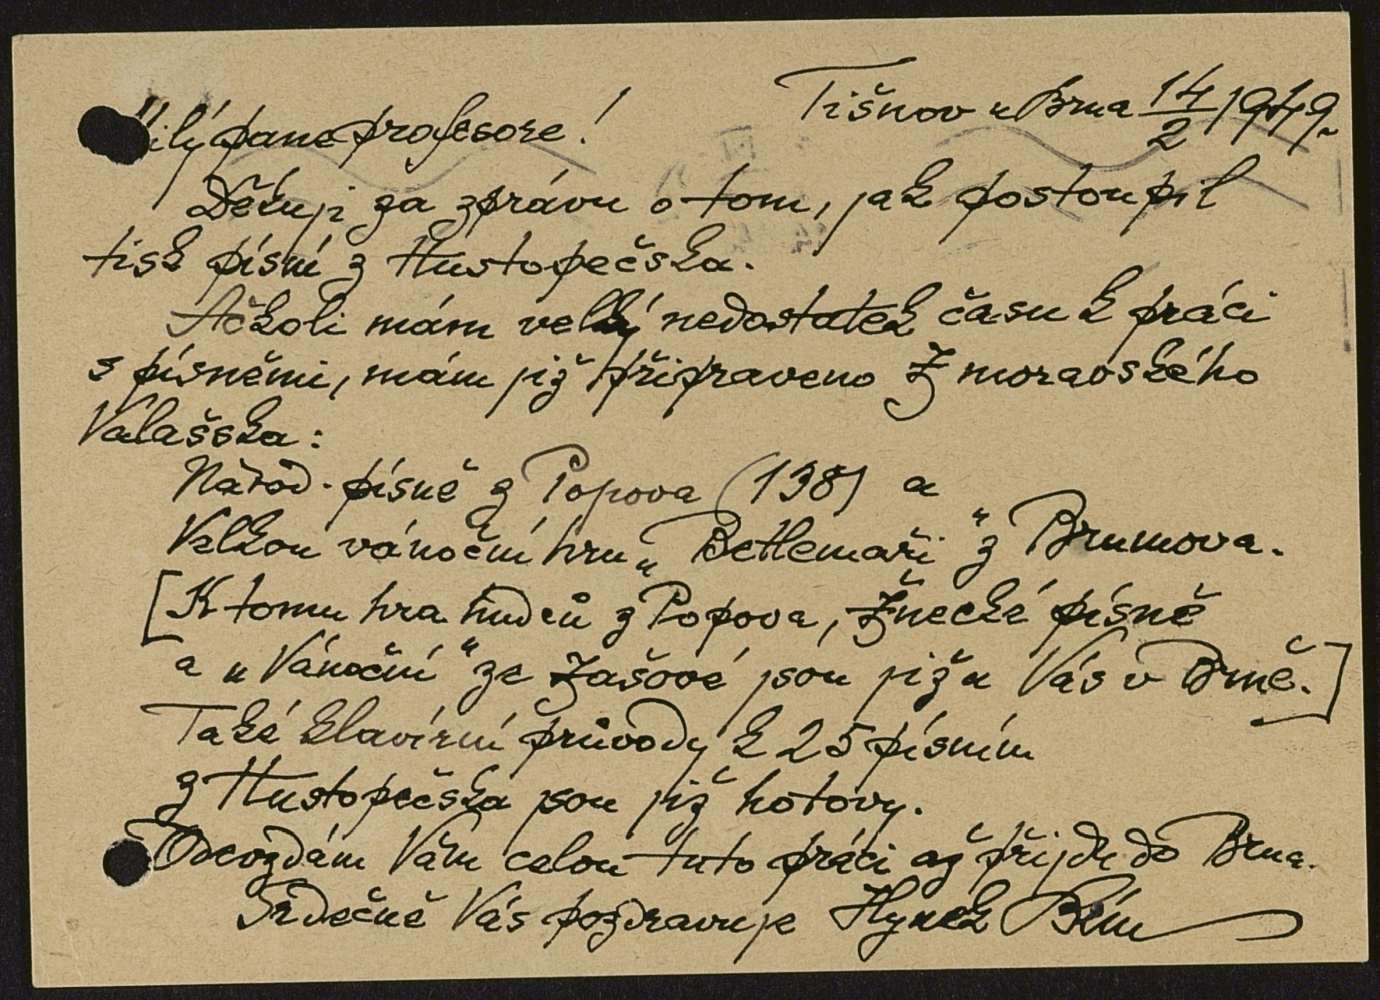 Tišnov u Brna 14/2 1949.
Milý pane profesore!
Děkuji za zprávu o tom, jak postoupil
tisk písní z Hustopečska.
Ačkoli mám velký nedostatek času k práci
s písněmi, mám již připraveno Z moravského
Valašska:
Národ. písně z Popova (138) a
Velkou vánoční hru „Betlemáři" z Brumova.
[K tomu hra hudců z Popova, Žnecké písně
a „Vánoční" ze Zašové jsou již u Vás v Brně.]
Také klavírní průvody k 25 písním
z Hustopečska jsou již hotovy.
Odevzdám Vám celou tuto práci až přijdu do Brna.
Srdečně Vás pozdravuje Hynek Bím